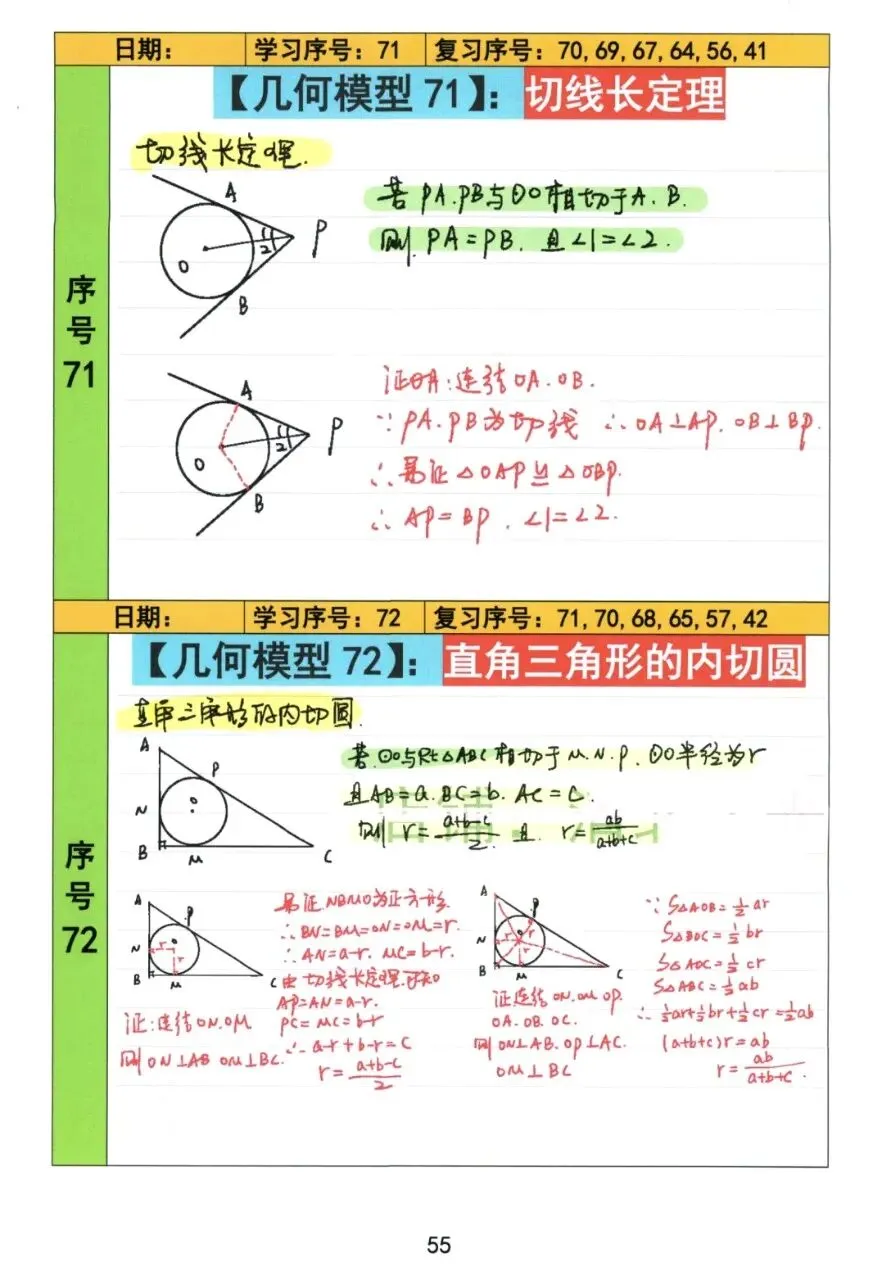 日期： 学习序号：71 复习序号：70,69,67,64,56,41
【几何模型 71】：切线长定理
序号71
切线长定理.
A
O
1
2
P
B
若PA.PB与⊙O相切于A.B.
则.PA=PB. 且∠1=∠2.
A
O
1
2
P
B
证明:连结OA.OB.
∵PA.PB为切线 ∴OA⊥AP.OB⊥BP.
∴易证△OAP≌△OBP.
∴AP=BP.∠1=∠2.
日期： 学习序号：72 复习序号：71,70,68,65,57,42
【几何模型 72】：直角三角形的内切圆
序号72
直角三角形的内切圆.
A
P
N
O
B
M
C
若⊙O与Rt△ABC相切于M.N.P.⊙O半径为r
且AB=a.BC=b.AC=c.
则 r=(a+b-c)/2 且 r=ab/(a+b+c)
A
P
N
r
r
B
M
C
证:连结ON.OM
则ON⊥AB OM⊥BC.
易证NBMO为正方形.
∴BN=BM=ON=OM=r.
∴AN=a-r. MC=b-r.
由切线长定理可知
AP=AN=a-r.
PC=MC=b-r
∴a-r+b-r=c
r=(a+b-c)/2
A
P
N
r
r
B
M
C
证连结ON.OM.OP.
OA.OB.OC.
则ON⊥AB.OP⊥AC.
OM⊥BC
∵S△AOB=½ar
S△BOC=½br
S△AOC=½cr
S△ABC=½ab
∴½ar+½br+½cr=½ab
(a+b+c)r=ab
r=ab/(a+b+c).
55